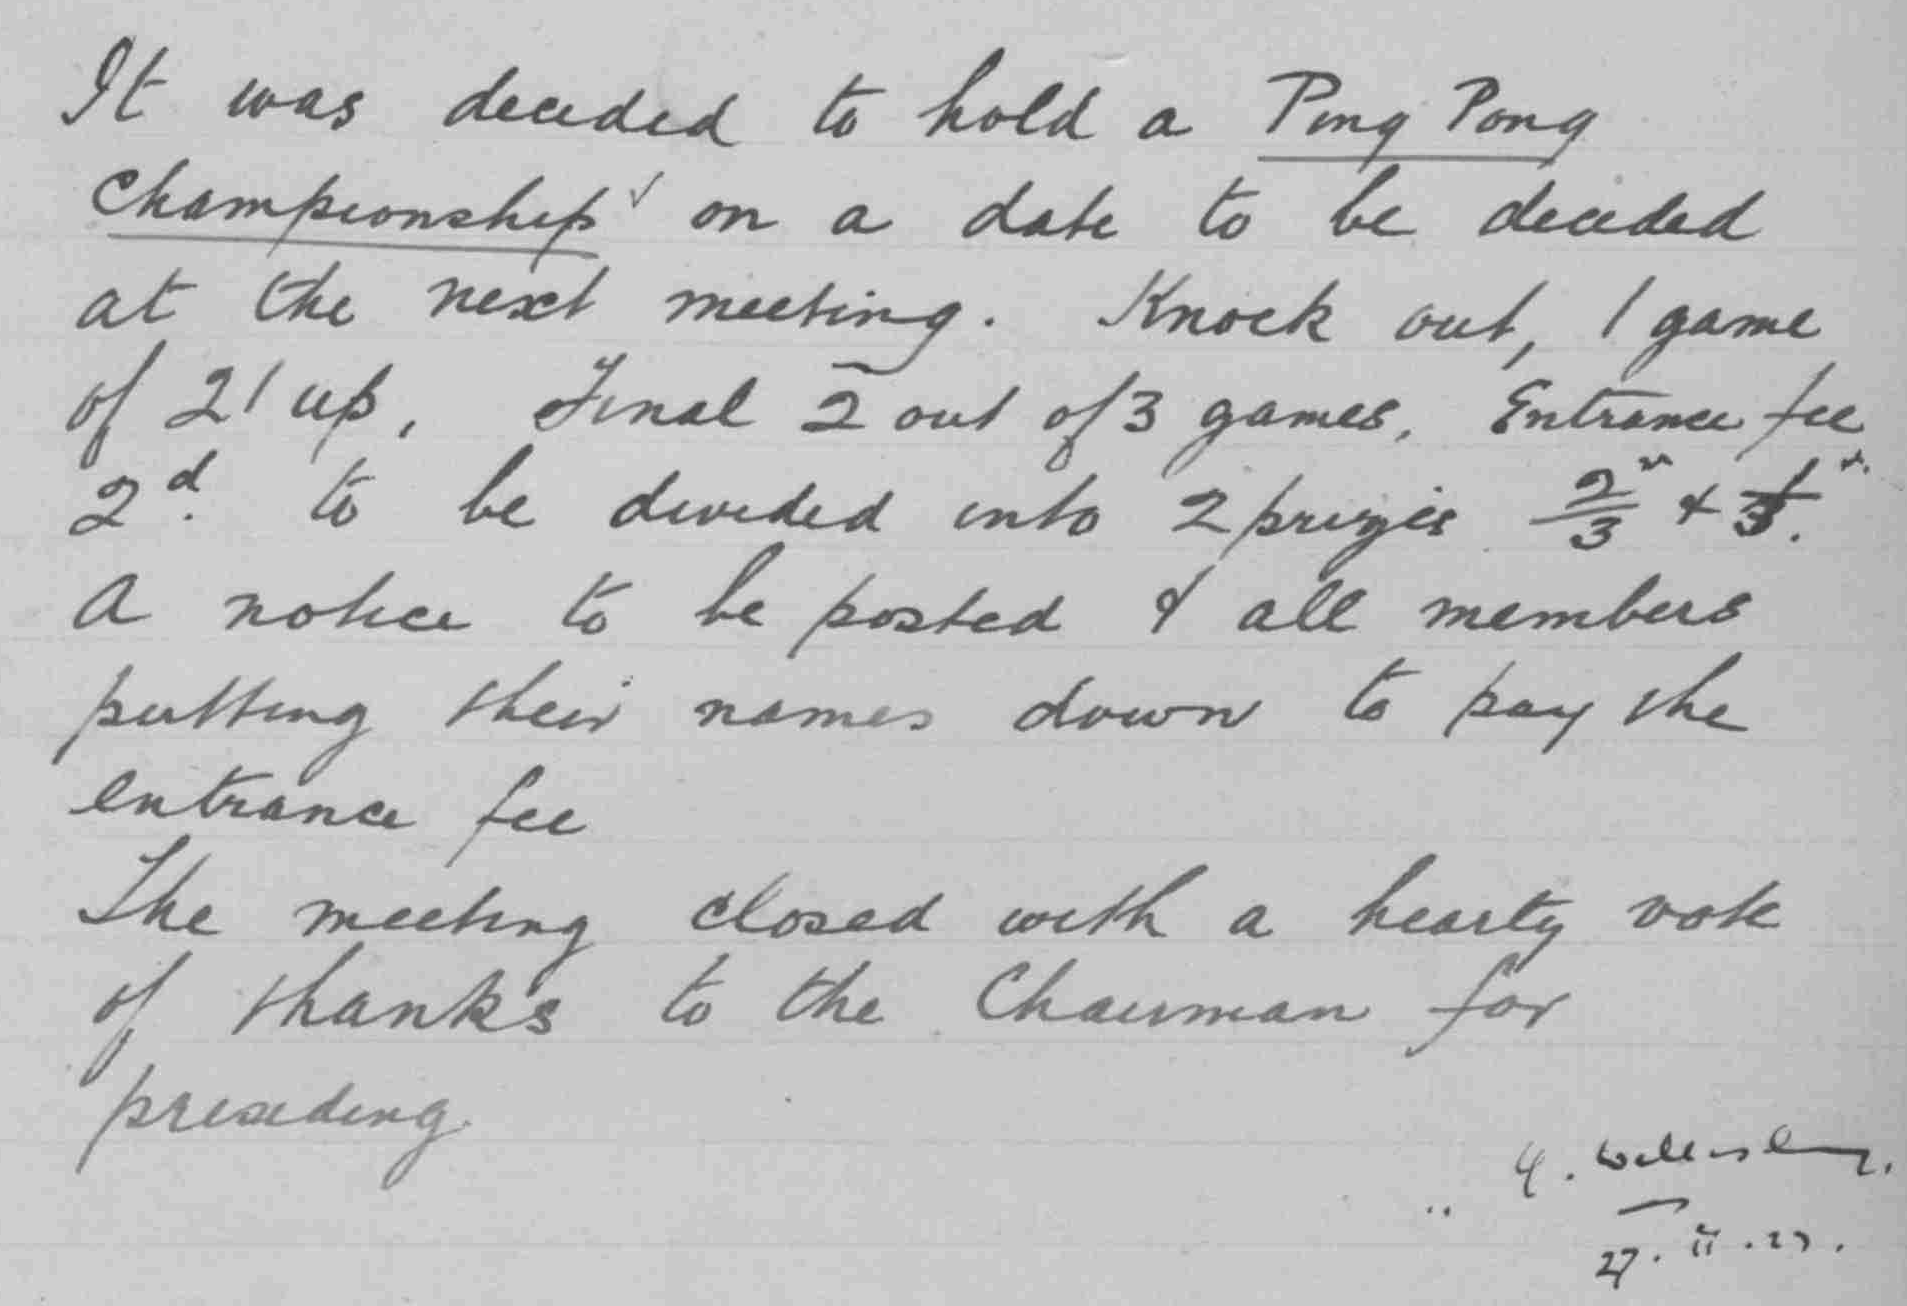 It was decided to hold a Ping Pong
Championship on a date to be decided
at the next meeting. Knock out, 1 game
of 21 up, Final 2 out of 3 games. Entrance fee
2d. to be divided into 2 prizes 2/3 & 1/3.
A notice to be posted & all members
putting their names down to pay the
entrance fee
The meeting closed with a hearty vote
of thanks to the Chairman for
presiding.
27. II. 27.